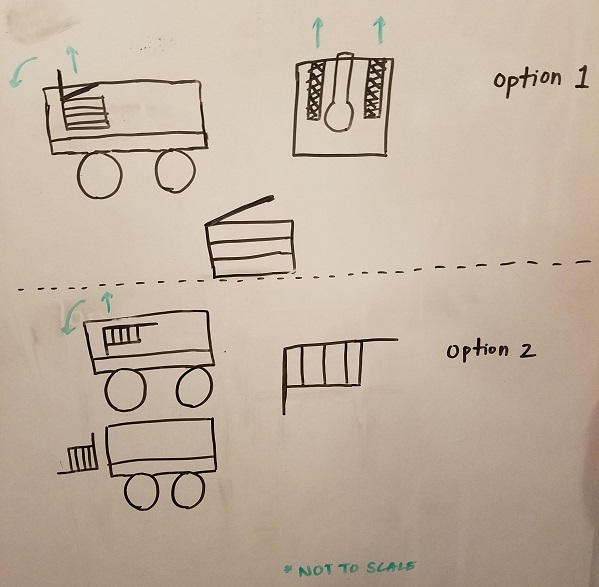 option 1
option 2
* NOT TO SCALE